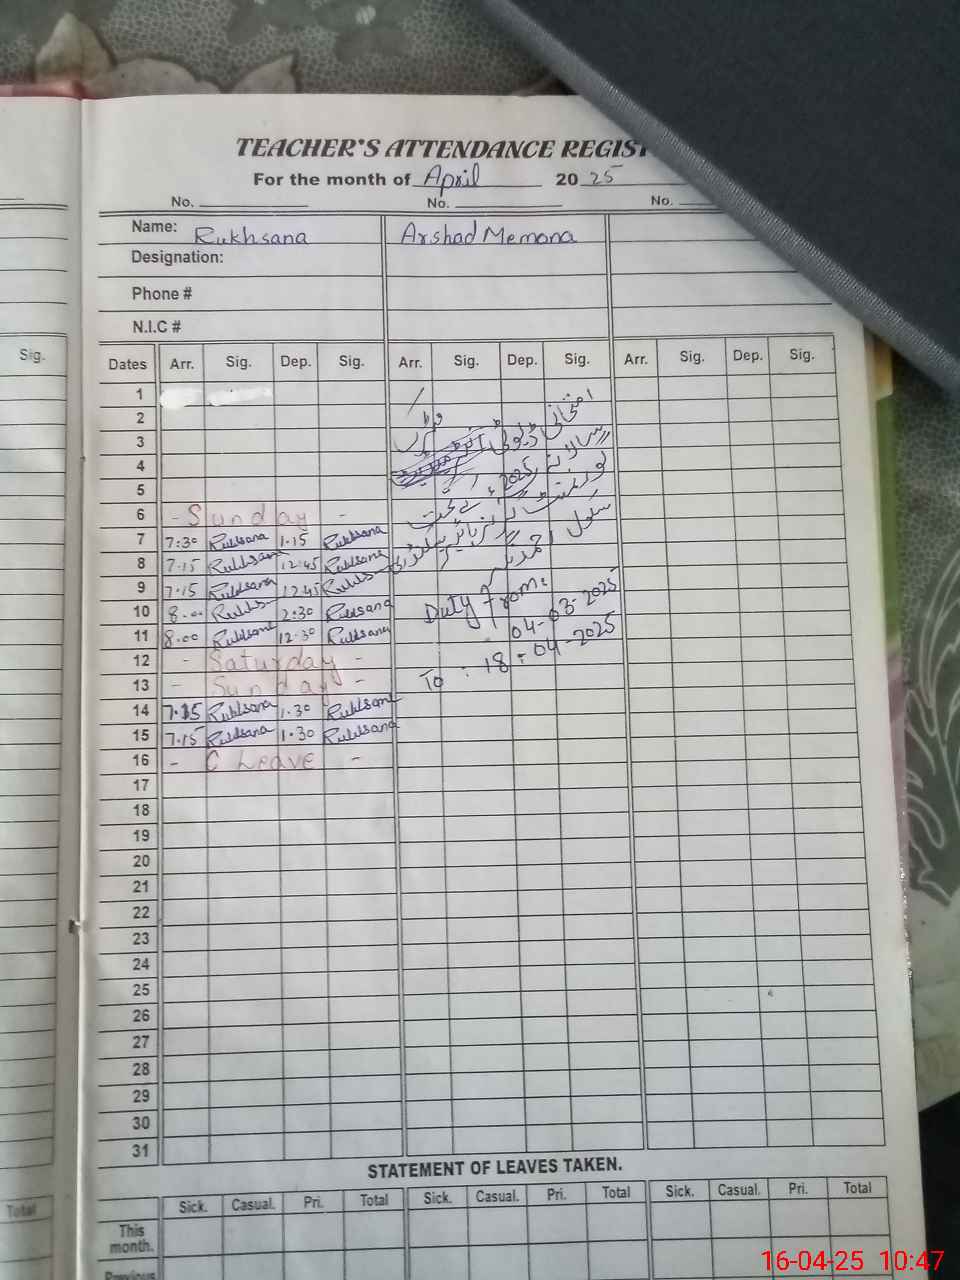 TEACHER'S ATTENDANCE REGIST
For the month of April 20 25
No. No. No.
Name: Rukhsana Arshad Memona
Designation:
Phone #
N.I.C #
Sig.
Dates Arr. Sig. Dep. Sig. Arr. Sig. Dep. Sig. Arr. Sig. Dep. Sig.
1
2
3
4
5
6 - Sunday -
7 7:30 Rukhsana 1.15 Rukhsana
8 7.15 Rukhsana 12.45 Rukhsana
9 7.15 Rukhsana 12.45 Rukhs
10 8.00 Rukhs 2:30 Rukhsana
11 8.00 Rukhsana 12.30 Rukhsana
12 - Saturday -
13 - Sunday -
14 7.15 Rukhsana 1.30 Rukhsana
15 7.15 Rukhsana 1.30 Rukhsana
16 - C Leave -
17
18
19
20
21
22
23
24
25
26
27
28
29
30
31
امتحانی ڈیوٹی
سالانہ 2025ء کے تحت
گورنمنٹ گرلز ہائیر سیکنڈری
سکول
Duty from:
04-03-2025
To : 18-04-2025
STATEMENT OF LEAVES TAKEN.
Total
Sick. Casual. Pri. Total Sick. Casual. Pri. Total Sick. Casual. Pri. Total
This
month.
Previous
16-04-25 10:47